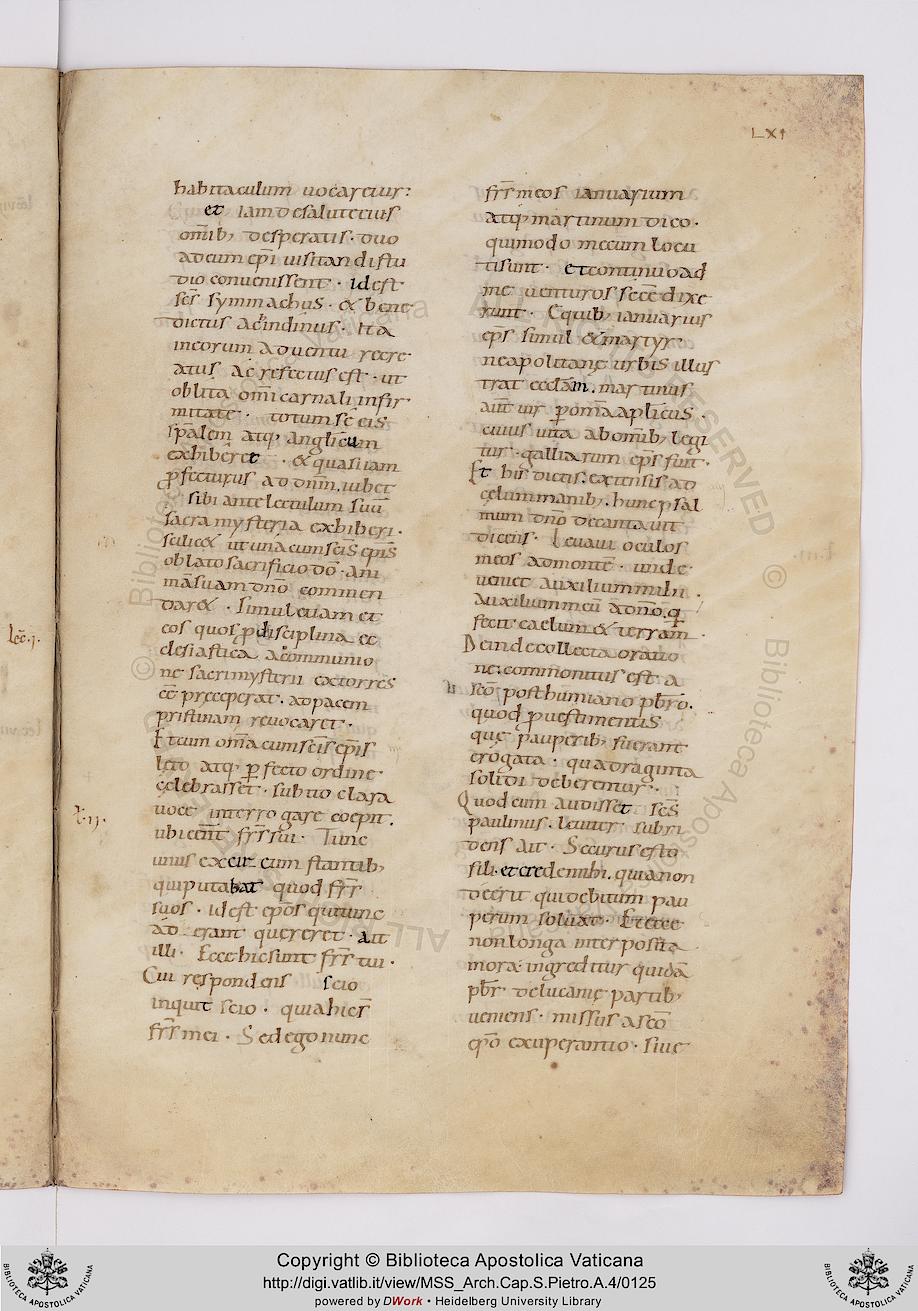 LXI
habitaculum uocaretur:
et iam desalute eius
omib; desperatis. duo
adeum epi uisitandi stu
dio conuenissent. id est
scs symmachus. & bene
dictus acindinus. Ita
ineorum aduentu recre
atus ac refectus est. ut
oblita omi carnali infir
mitate. totum se eis
spalem atq; anglicum
exhiberet. & quasi iam
pfecturus ad dnm. iubet
sibi ante lectulum suu
sacra mysteria exhiberi.
scilic& ut una cum scis epis
oblato sacrificio do. ani
ma suam dno commen
dar&. simul etiam et
eos quos p disciplina ec
clesiastica a communio
ne sacri mysterii extorres
ee preceperat. ad pacem
pristinam reuocaret.
Et cum oma cum scis epis
leto atq; pfecto ordine
celebrasset. subito clara
uoce interrogare coepit.
ubi eent frs sui. Tunc
unus ex eis cum stantib;
qui putabat quod frs
suos. id est epos qui tunc
ad erant quereret. ait
illi. Ecce hic sunt frs tui.
Cui respondens scio
inquit scio. quia hi es
frs mei. Sed ego nunc
frs meos ianuarium
atq; martinum dico.
qui modo mecum locu
ti sunt. et continuo ad
me uenturos se ee dixe
runt. E quib; ianuarius
eps simul & martyr.
neapolitane urbis illus
trat ecclam. martinus
aut uir p oma aplicus.
cuius uita ab omib; legi
tur. galliarum eps fuit.
Et his dictis. extensis ad
celum manib;. hunc psal
mum dno decantauit
dicens. Leuaui oculos
meos ad monte. unde
ueniet auxilium mihi.
Auxilium meu a dno. q
fecit caelum & terram.
Deinde collecta oratio
ne. commonitus est a
sco posthumiano pbro.
quod p uestimentis
que pauperib; fuerant
erogata. quadraginta
solidi deberentur.
Quod cum audisset scs
paulinus. leuiter subri
dens ait. Securus esto
fili. et crede mihi. quia non
deerit qui debitum pau
perum soluat. Et ecce
non longa interposita
mora: ingreditur quida
pbr de lucanie partib;
ueniens. missus a sco
epo exuperantio. siue
Lec. i.
Copyright © Biblioteca Apostolica Vaticana
http://digi.vatlib.it/view/MSS_Arch.Cap.S.Pietro.A.4/0125
powered by DWork • Heidelberg University Library